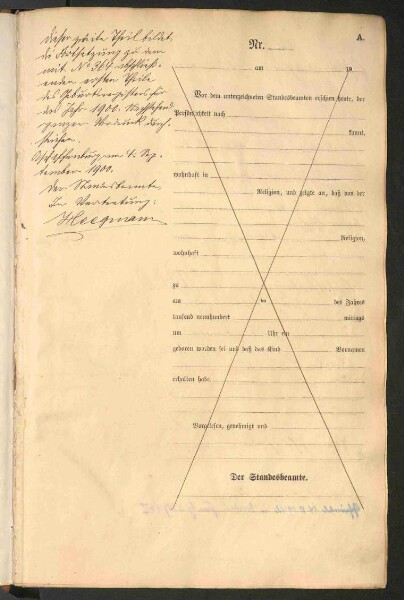 Dieser zweite Theil bildet
die Fortsetzung zu dem
mit N° 364 abschließ-
enden ersten Theile
des Geburtsregisters für
das Jahr 1900. Nachstehend
ganzer Vordruck durch-
strichen.
Aschaffenburg am 4. Sep-
tember 1900.
Der Standesbeamte
In Vertretung:
Heegmann
A.
Nr.
am 19
Vor dem unterzeichneten Standesbeamten erschien heute, der
Persönlichkeit nach
kannt,
wohnhaft in
Religion, und zeigte an, daß von der
Religion,
wohnhaft
zu
am des Jahres
tausend neunhundert mittags
um Uhr ein
geboren worden sei und daß das Kind Vornamen
erhalten habe
Vorgelesen, genehmigt und
Der Standesbeamte.